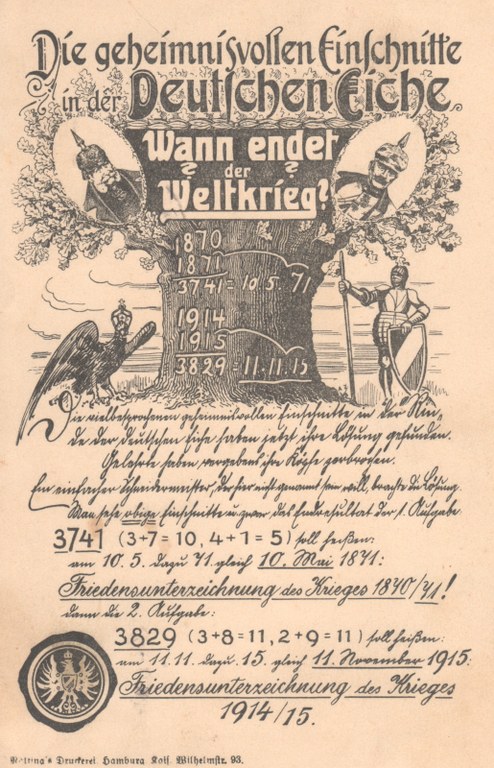 Die geheimnisvollen Einschnitte
in der Deutschen Eiche.
Wann endet
der
Weltkrieg?
1870
1871
3741 = 10.5.71
1914
1915
3829 = 11.11.15
Die vielbesprochenen geheimnisvollen Einschnitte in der Rin-
de der deutschen Eiche haben jetzt ihre Lösung gefunden.
Gelehrte haben vergebens ihre Köpfe zerbrochen.
Ein einfacher Schneidermeister, der hier nicht genannt sein will, brachte die Lösung.
Man sehe obige Einschnitte u. zwar das Endresultat der 1. Aufgabe
3741 (3+7=10, 4+1=5) soll heißen:
am 10. 5. dazu 71. gleich 10. Mai 1871:
Friedensunterzeichnung des Krieges 1870/71!
dann die 2. Aufgabe:
3829 (3+8=11, 2+9=11) soll heißen:
am 11. 11. dazu 15. gleich 11. November 1915:
Friedensunterzeichnung des Krieges
1914/15.
Druckerei. Hamburg Kais. Wilhelmstr. 93.